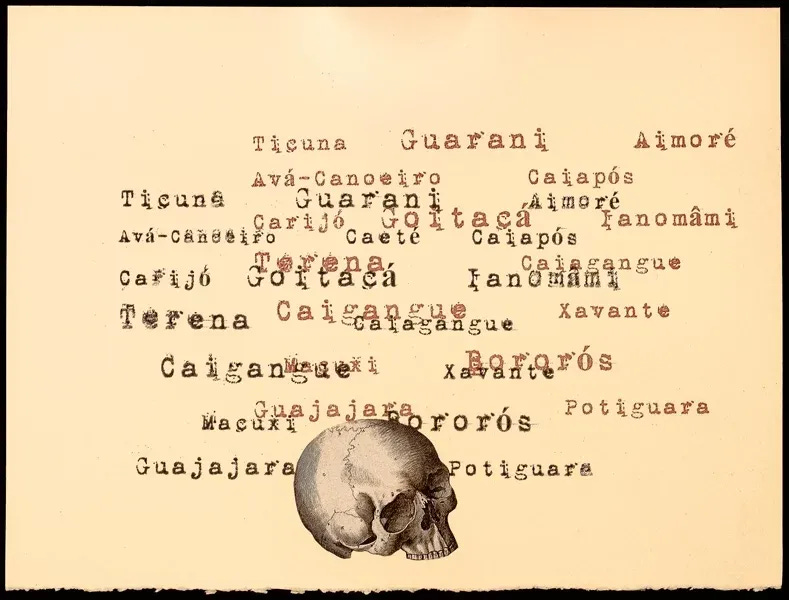 Ticuna Guarani Aimoré
Avá-Canoeiro Caiapós
Ticuna Guarani Aimoré
Carijó Goitacá Ianomâmi
Avá-Canoeiro Caeté Caiapós
Terena Caiagangue
Carijó Goitacá Ianomâmi
Caigangue Xavante
Terena Caiagangue
Macuxi Bororós
Caigangue Xavante
Guajajara Potiguara
Macuxi Bororós
Guajajara Potiguara